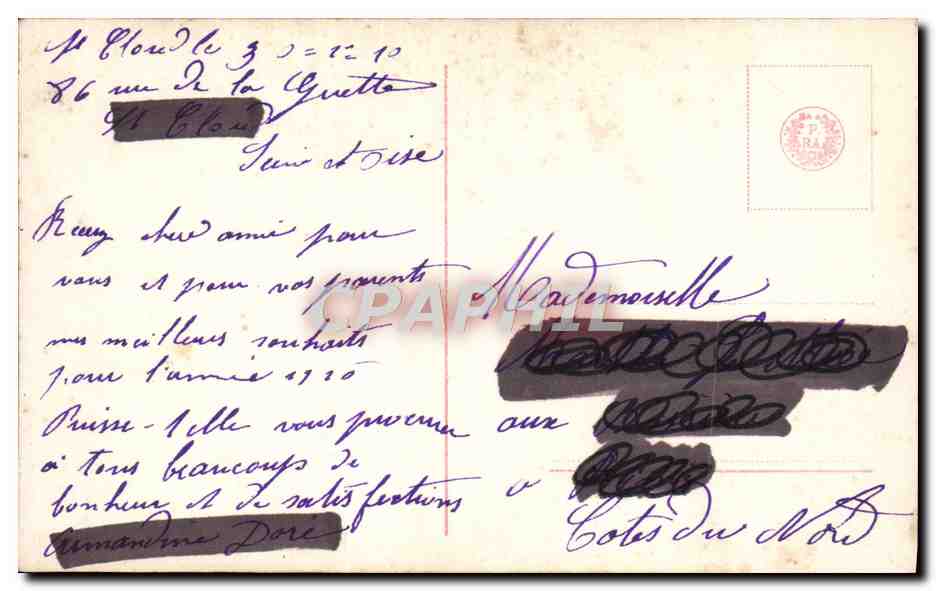 St Cloud le 30=12=10
86 rue de la Guette
St Cloud
Seine et Oise
Recevez chere amie pour
vous et pour vos parents
mes meilleurs souhaits
pour l'année 1910
Puisse-t-elle vous procurer
à tous beaucoups de
bonheur et de satisfactions
Armandine Doré
Mademoiselle
aux
a
Cotes du Nord
P.
RA
CPAPHIL